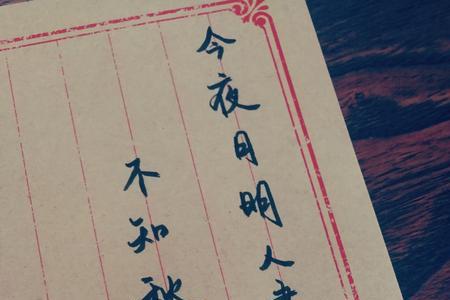 今夜月明人
不知秋